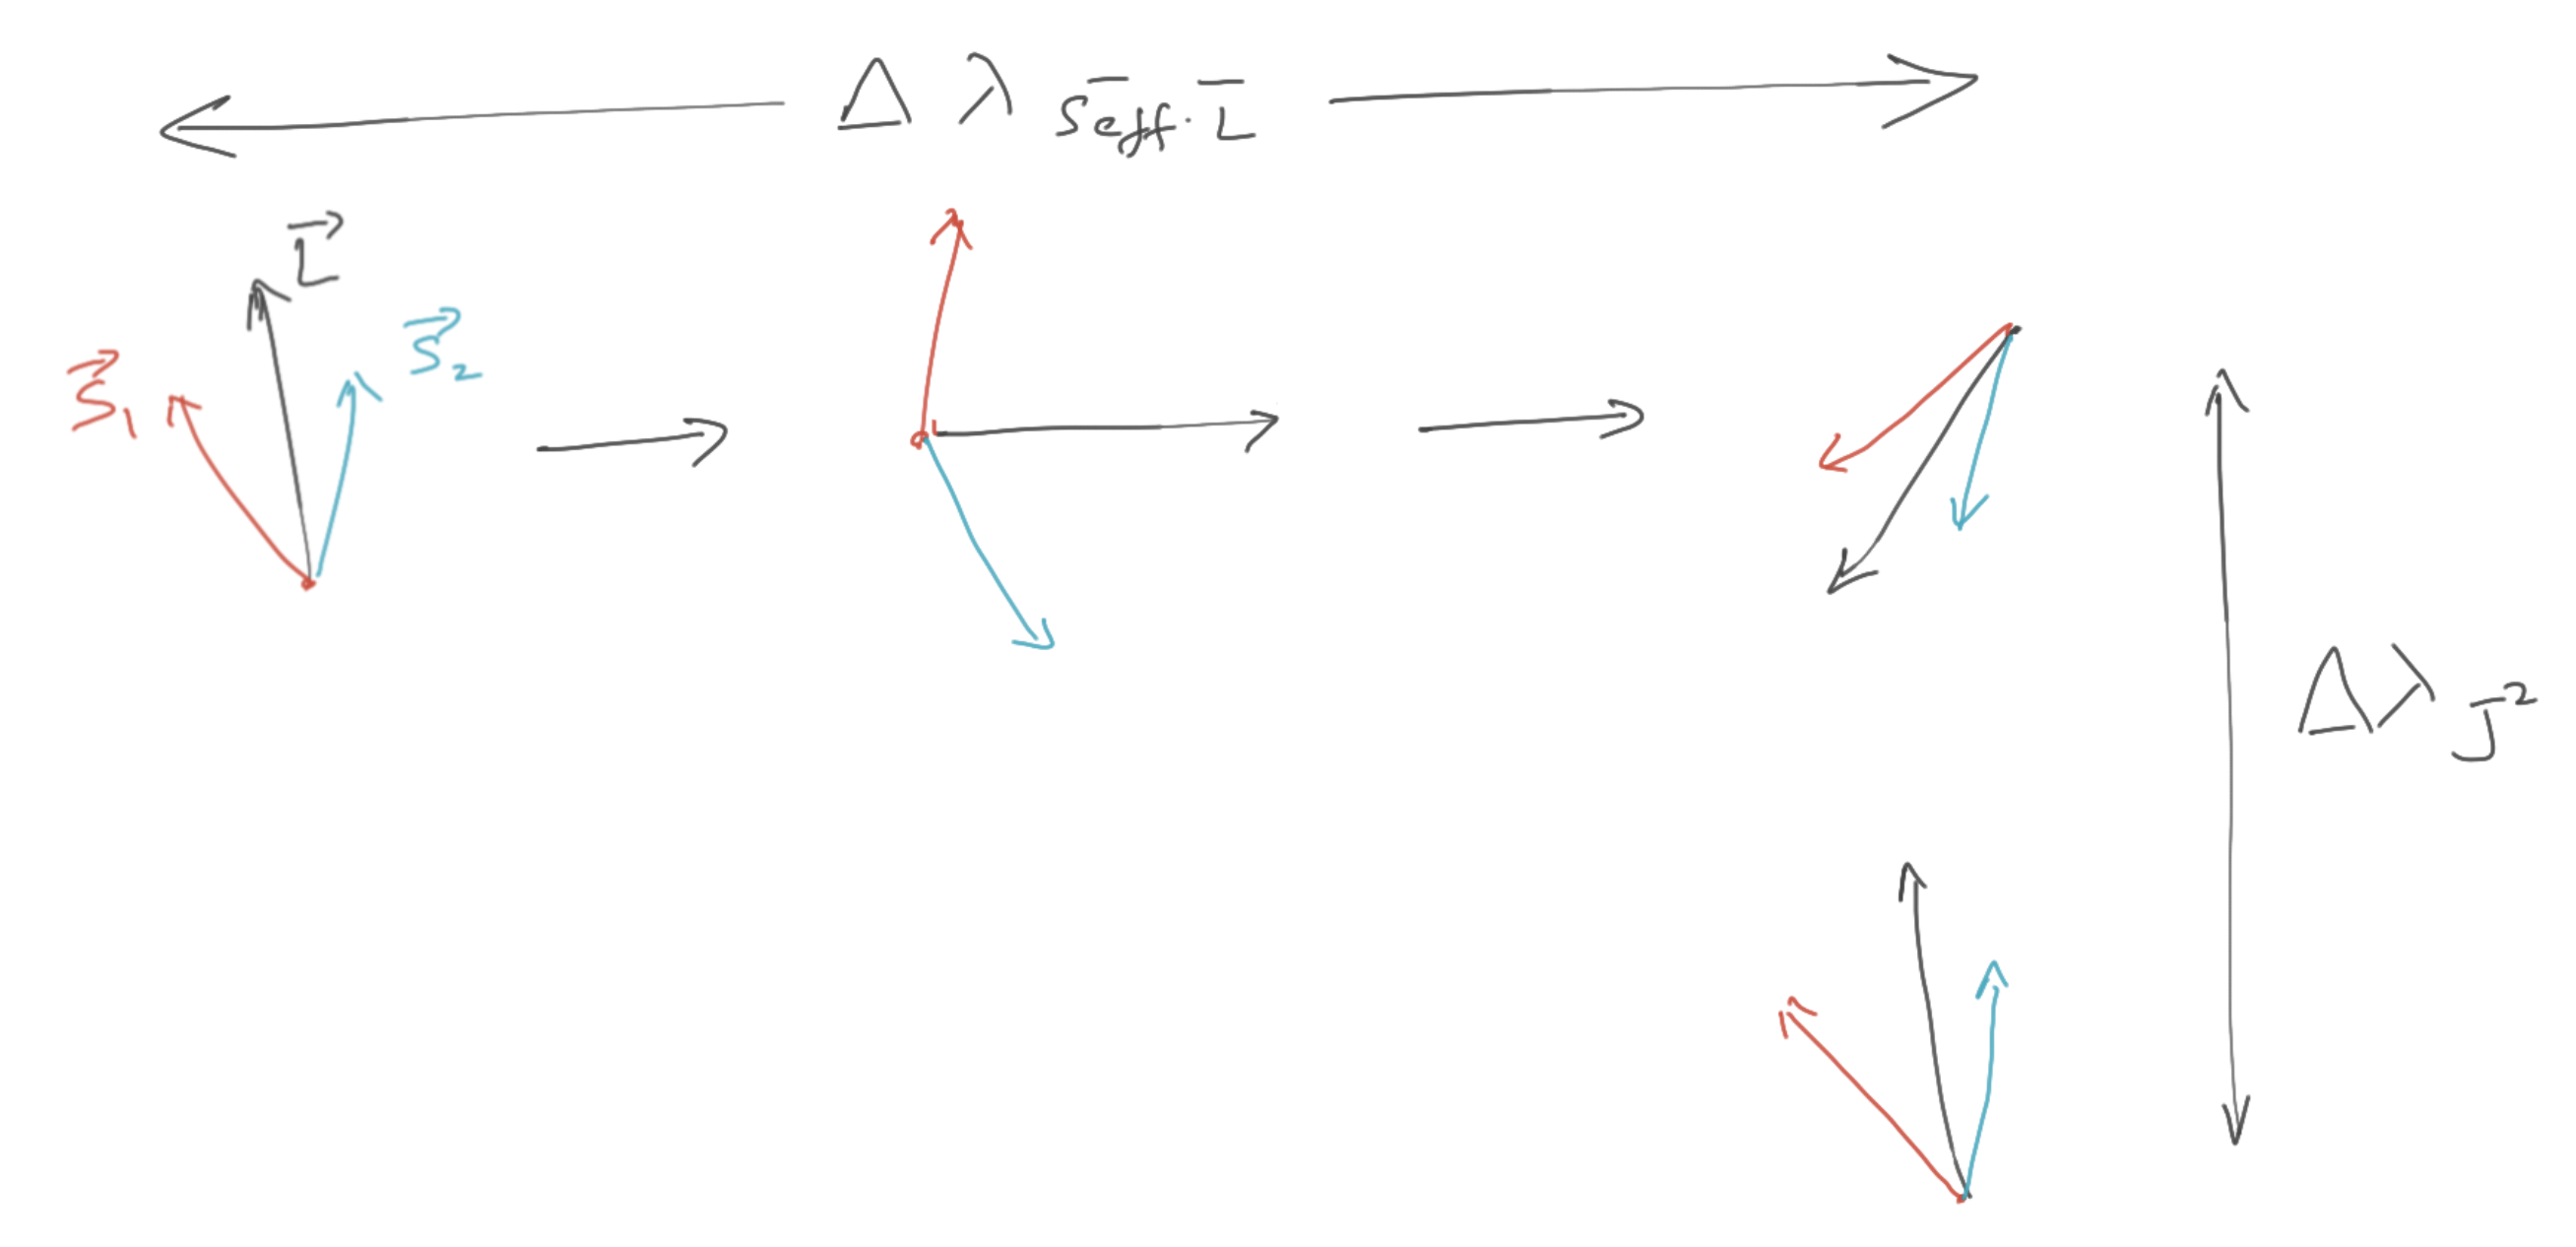 Δ λ S̅eff · L̅
L⃗
S⃗₁
S⃗₂
Δλ J²